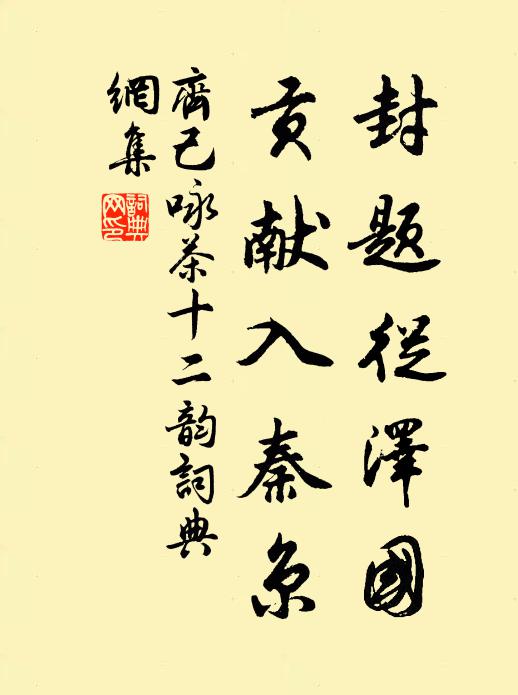 封题從澤國
贡献入秦京
齊己咏茶十二韵詞典
網集
詞典
网印